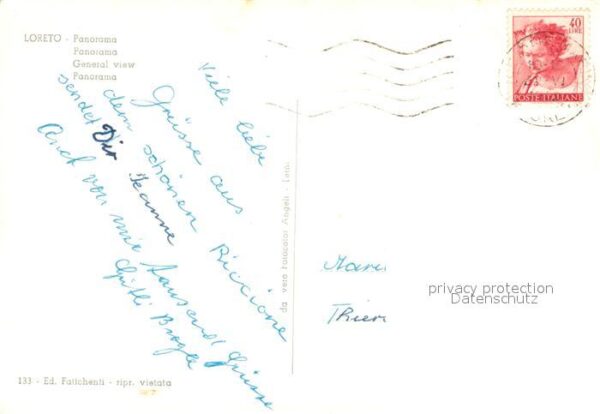 LORETO - Panorama
Panorama
General view
Panorama
Viele liebe
Grüsse aus
dem schönen Riccione
sendet Dir Jeanne
Auch von mir tausend Grüsse
133 - Ed. Faiichenti - ripr. vietata
da vera Fotocolor Angeli - Terni
40
LIRE
POSTE ITALIANE
privacy protection
Datenschutz